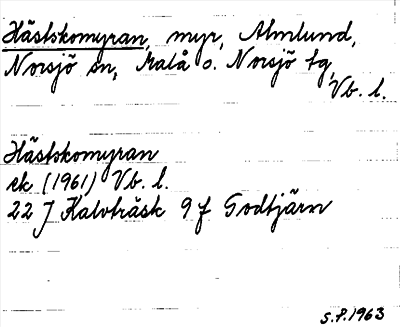 Hästskomyran, myr, Almlund,
Norsjö sn, Malå o. Norsjö tg,
Vb. l.
Hästskomyran
ek (1961) Vb. l.
22 J Kalvträsk 9 f Godtjärn
S.P. 1963